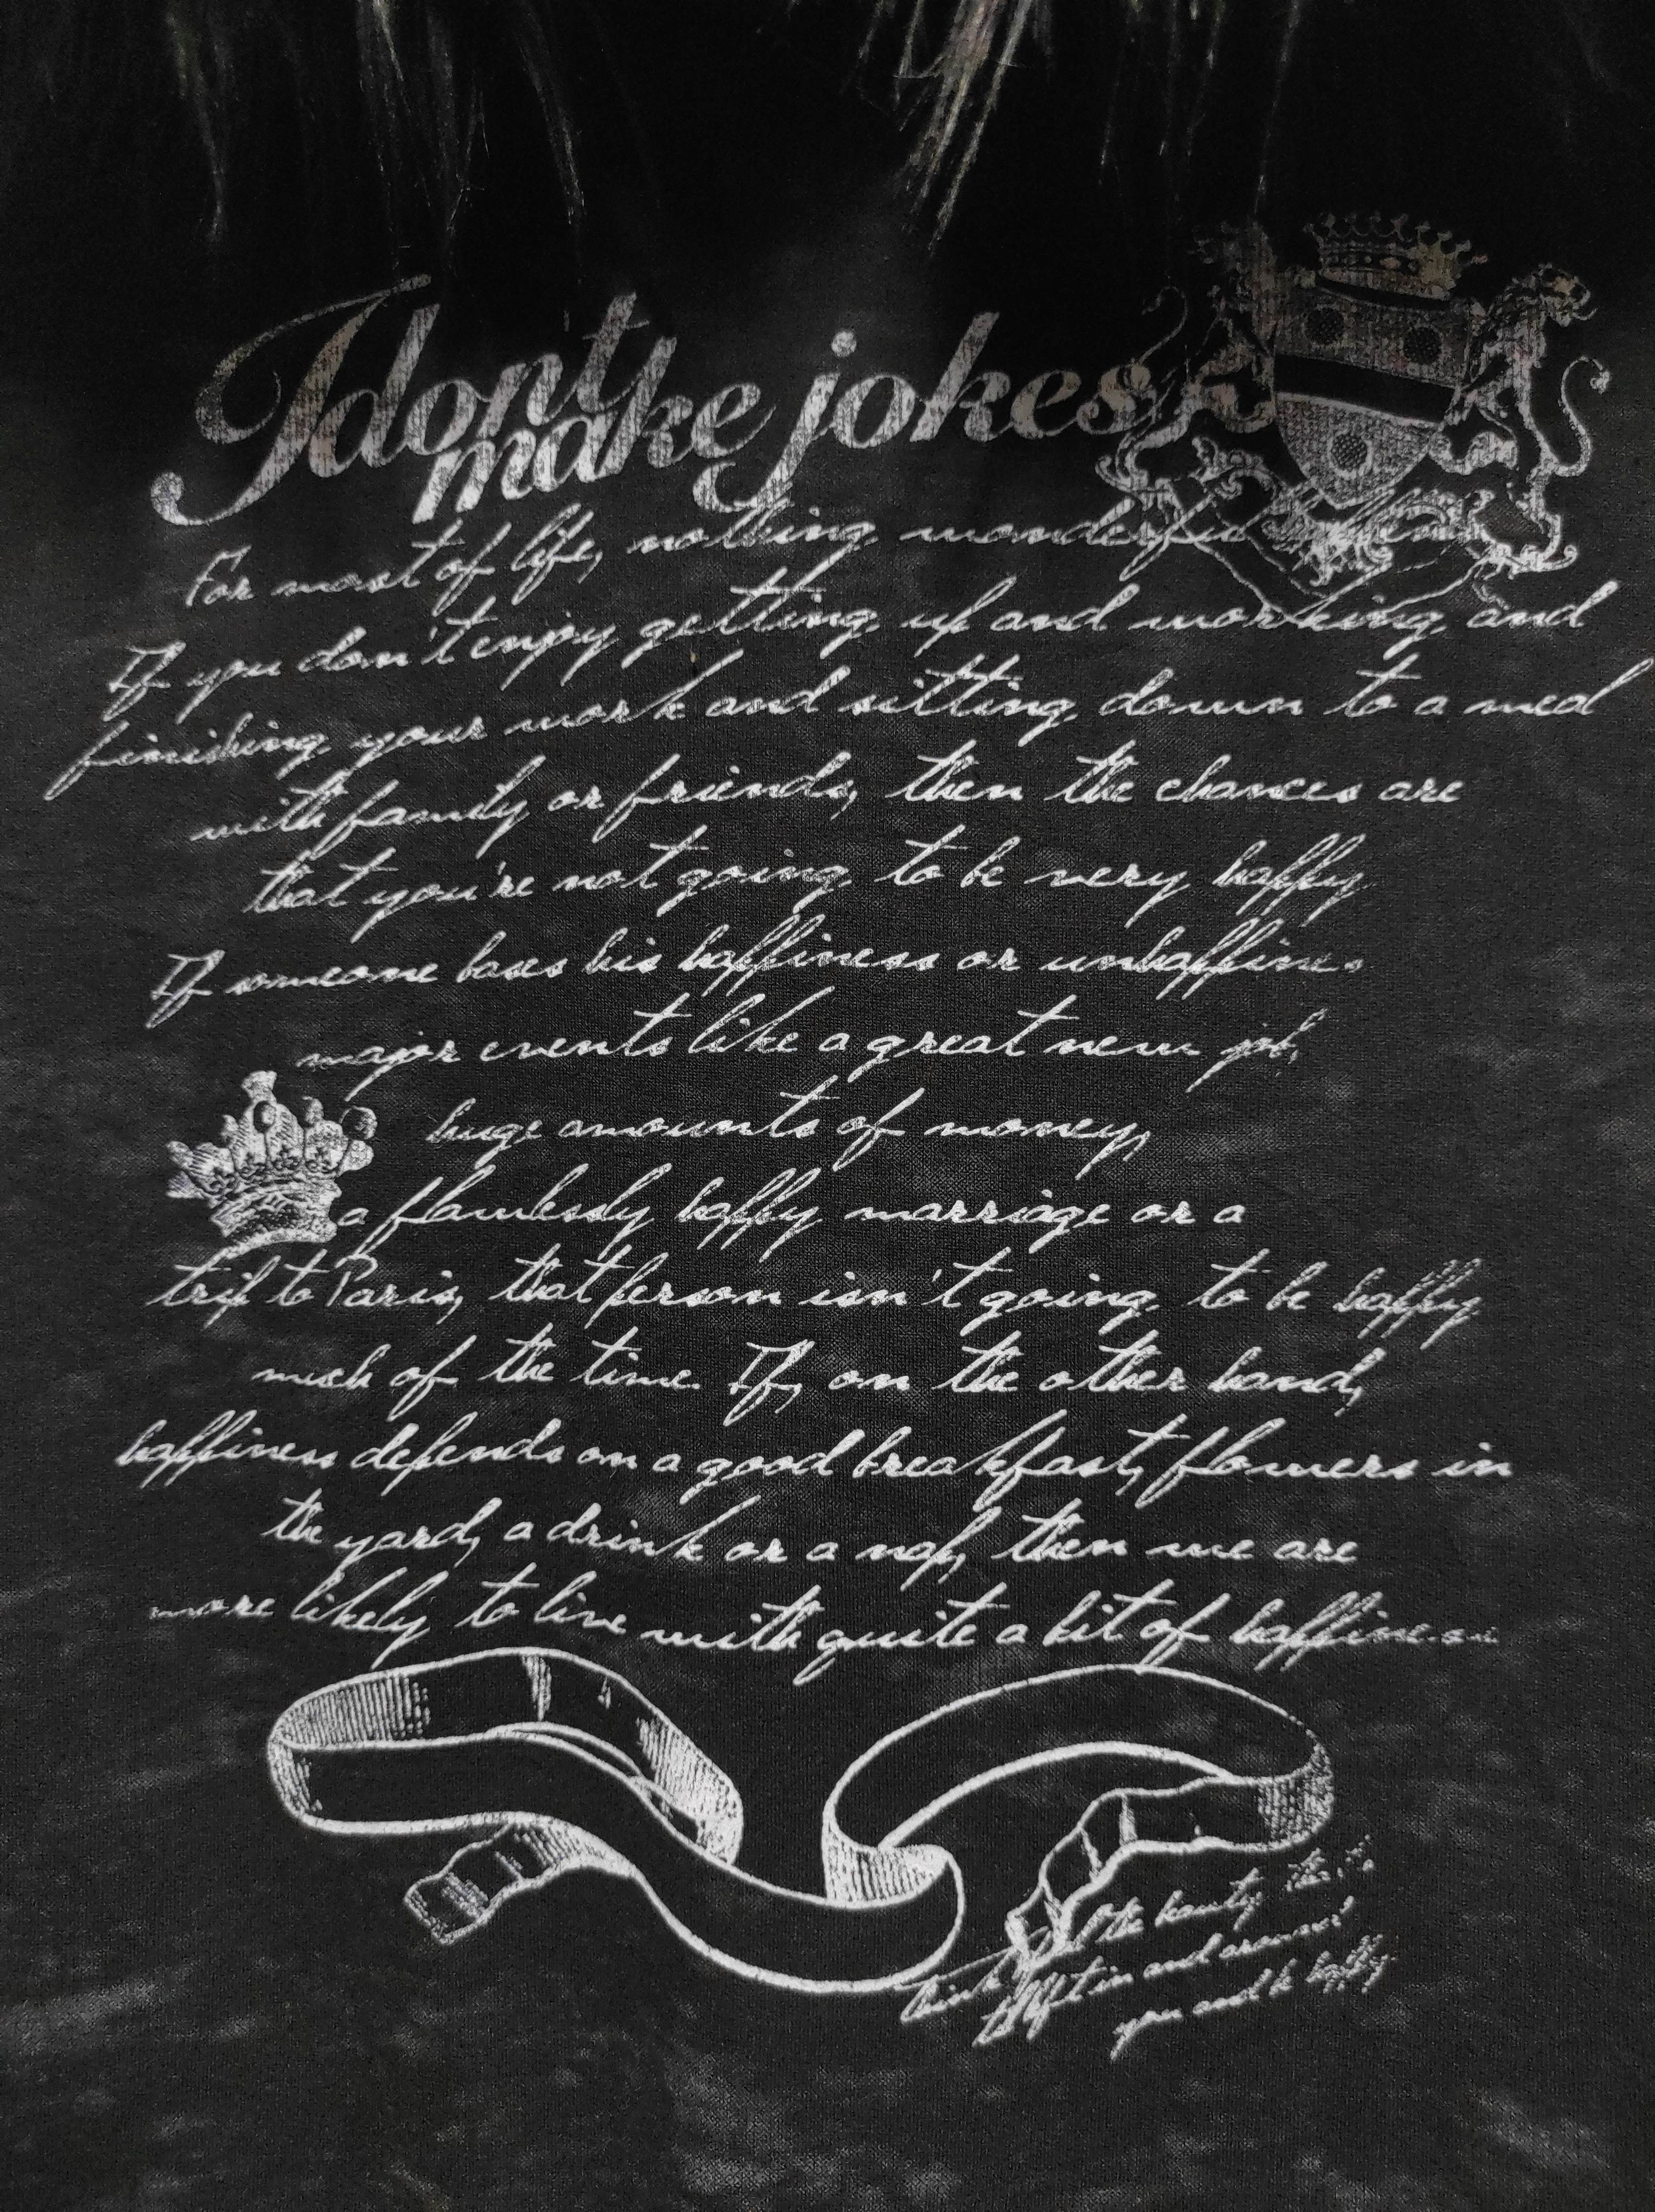 I dont make jokes
For most of life, nothing wonderful
If you don't enjoy getting up and working and
finishing your work and sitting down to a meal
with family or friends, then the chances are
that you're not going to be very happy
If someone bases his happiness or unhappines
major events like a great new job,
huge amounts of money,
a flawlessly happy marriage or a
trip to Paris, that person isn't going to be happy
much of the time. If, on the other hand,
happiness depends on a good breakfast, flowers in
the yard, a drink or a nap, then we are
more likely to live with quite a bit of happiness
the beauty
left in and around
you and be happy